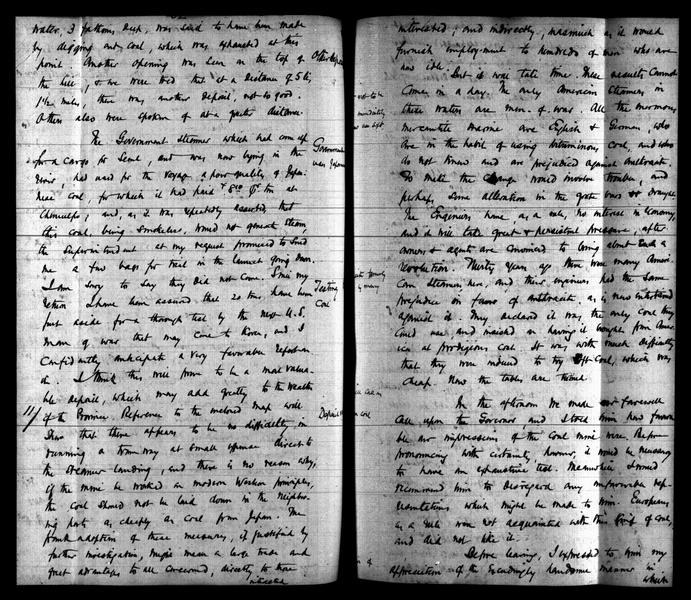 water, 3 fathoms deep, was said to have been made
by digging out coal, which was exhausted at this
point. Another opening was seen on the top of
the hill, & we were told that at a distance of 5 li,
1½ miles, there was another deposit, not so good.
Others also were spoken of at a greater distance.
The Government steamer which had come up
for a cargo to Seoul, and was now lying in the
river, had used for the voyage a poor quality of Japa-
nese coal, for which it had paid $8.00 pr ton at
Chemulpo; and, as I was repeatedly assured that
this coal, being smokeless, would not generate steam,
the Superintendent at my request promised to send
me a few bags for trial in the launch going down.
I am sorry to say they did not come. Since my
return I have been assured that 20 tons have been
put aside for a thorough test by the next U.S.
man of war that may come to the river, and I
confidently anticipate a very favorable report on
it. I think this will prove to be a most valua-
ble deposit, which may add greatly to the wealth
of the Province. Reference to the enclosed map will
show that there appears to be no difficulty in
running a tram way at small expense direct to
the steamer landing, and there is no reason why,
if the mine be worked on modern Western principles,
the coal should not be laid down in the neighbor-
ing ports as cheaply as coal from Japan. The
prompt adoption of these measures, if justified by
further investigation, might mean a large trade and
great advantage to all concerned, directly to those
interested
Government
Testing
Coal
Deposit
interested; and indirectly, inasmuch as it would
furnish employment to hundreds of men who are
now idle. But it will take time. These results cannot
come in a day. The only American steamers in
these waters are men-of-war. All the enormous
mercantile marine are English & German, who
are in the habit of using bituminous coal, and who
do not know and are prejudiced against anthracite.
To make the change would involve trouble, and
perhaps some alteration in the grate bars & draught.
The Engineers have, as a rule, no interest in economy,
and it will take great & persistent pressure, after
owners & agents are convinced to bring about such a
revolution. Thirty years ago there were many Ameri-
can steamers here, and their engineers had the same
prejudice in favor of anthracite, as is now entertained
against it. They declared it was the only coal they
could use and insisted on having it brought from Amer-
ica at prodigious cost. It was with much difficulty
that they were induced to try soft coal, which was
cheap. Now the tables are turned.
In the afternoon we made our farewell
call upon the Governor, and I told him how favora-
ble our impressions of the coal mine were. Before
pronouncing with certainty, however, it would be necessary
to have an exhaustive test. Meanwhile I would
recommend him to disregard any unfavorable rep-
resentations which might be made to him. Europeans
as a rule were not acquainted with this kind of coal,
and did not like it.
Before leaving, I expressed to him my
appreciation of the exceedingly handsome manner in
which